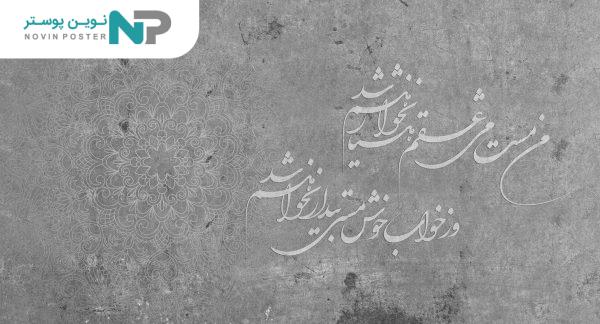 نوین پوستر
NOVIN POSTER
NP
من مست می عشقم هشیار نخواهم شد
وز خواب خوش مستی بیدار نخواهم شد